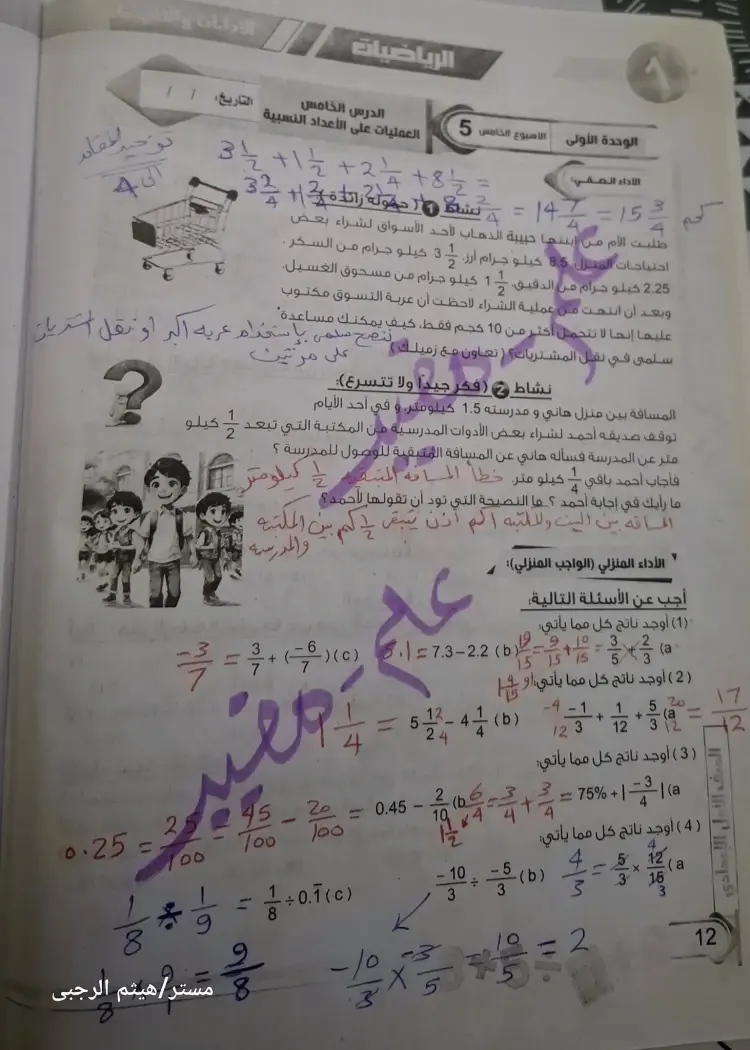 الرياضيات
1
الوحدة الأولى
الأسبوع الخامس 5
الدرس الخامس
العمليات على الأعداد النسبية
التاريخ: / /
توحيد المقامات
الى 4
3 1/2 + 1 1/2 + 2 1/4 + 8 1/2 =
3 2/4 + 1 2/4 + 2 1/4 + 8 2/4 = 14 7/4 = 15 3/4 كجم
الأداء الصفي:
نشاط 1 (حمولة زائدة):
طلبت الأم من ابنتها حبيبة الذهاب لأحد الأسواق لشراء بعض
احتياجات المنزل 8.5 كيلو جرام أرز، 3 1/2 كيلو جرام من السكر.
2.25 كيلو جرام من الدقيق، 1 1/2 كيلو جرام من مسحوق الغسيل.
وبعد أن انتهت من عملية الشراء لاحظت أن عربة التسوق مكتوب
عليها إنها لا تتحمل أكثر من 10 كجم فقط، كيف يمكنك مساعدة
سلمى في نقل المشتريات؟ (تعاون مع زميلك)
ننصح سلمى باستخدام عربه اكبر او نقل المشتريات
على مرتين
نشاط 2 (فكر جيداً ولا تتسرع):
المسافة بين منزل هاني و مدرسته 1.5 كيلومتر، و في أحد الأيام
توقف صديقه أحمد لشراء بعض الأدوات المدرسية من المكتبة التي تبعد 1/2 كيلو
متر عن المدرسة فسأله هاني عن المسافة المتبقية للوصول للمدرسة ؟
فأجاب أحمد باقي 1/4 كيلو متر. خطأ المسافه المتبقيه 1/2 كيلو متر
ما رأيك في إجابة أحمد ؟ ما النصيحة التي تود أن تقولها لأحمد؟
المسافه بين البيت والمكتبه 1كم اذن يتبقى 1/2 كم بين المكتبه
والمدرسه
علم - مفيد
الأداء المنزلي (الواجب المنزلي):
أجب عن الأسئلة التالية:
(1) أوجد ناتج كل مما يأتي:
a) 2/3 + 3/5 = 10/15 + 9/15 = 19/15 او 1 4/15
(b) 7.3 - 2.2 = 5.1
(c) 3/7 + (-6/7) = -3/7
(2) أوجد ناتج كل مما يأتي:
a) 5/3 + 1/12 + -1/3 20/12 -4/12 = 17/12
(b) 5 1/2 - 4 1/4 2/4 = 1 1/4
(3) أوجد ناتج كل مما يأتي:
a) |-3/4| + 75% = 3/4 + 3/4 = 6/4 1 1/2
b) 0.45 - 2/10 = 45/100 - 20/100 = 25/100 = 0.25
(4) أوجد ناتج كل مما يأتي:
a) 12/15 × 5/3 = 4/3
(b) -10/3 ÷ -5/3
-10/3 × -3/5 = 10/5 = 2
(c) 1/8 ÷ 0.1̅ = 1/8 ÷ 1/9
1/8 × 9/1 = 9/8
علم - مفيد
الصف الأول الإعدادي
12
مستر/هيثم الرجبى